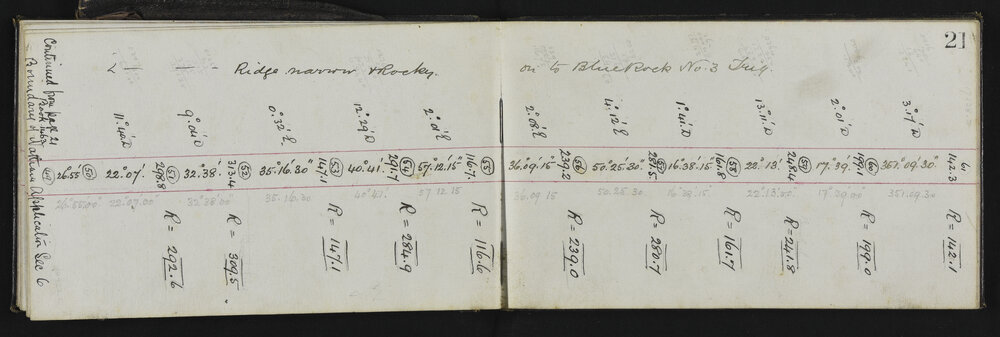 21
Continued from page 21
Book No 2
Boundary of Wattina Application Sec 6
Ridge narrow & Rocky.
on to Blue Rock No. 3 Trig.
11°.40'.D
9°.04'.D
0°.32'.E
12°.29'.D
2°.01'.E
2°.08'.E
4°.12'.E
1°.41'.D
13°.11'.D
2°.01'.D
3°.17'.D
26.55' 50 22°.07'. 298.8 51 32°.38'. 313.4 52 35°.16'.30" 147.1 53 40°.41'. 291.7 54 57°.12'.15" 116.7. 55
36°.09'.15" 239.2 56 50°.25'.30" 281.5 57 16°.38'.15" 161.8 58 22°.13'. 248.4 59 17°.39'. 199.1 60 351°.09'.30" 142.3 61
26°55.00" 22°.07.00" 32°38.00 35.16.30 40°.41. 57 12 15
36.09 15 50.25.30 16°38.15" 22°.13.00 17°39.00 351.09.30
R = 292.6
R = 309.5
R = 147.1
R = 284.9
R = 116.6
R = 239.0
R = 280.7
R = 161.7
R = 241.8
R = 199.0
R = 142.1